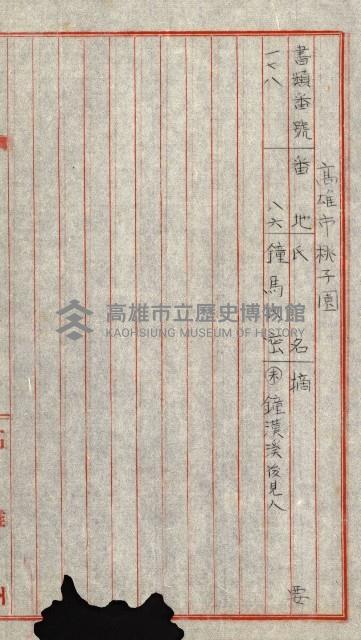 高雄市桃子園
書類番號 番地 氏名 摘要
一七八 八六 鐘馬 ㊍鐘漢溪後見人
高雄市立歷史博物館
KAOHSIUNG MUSEUM OF HISTORY
高雄州